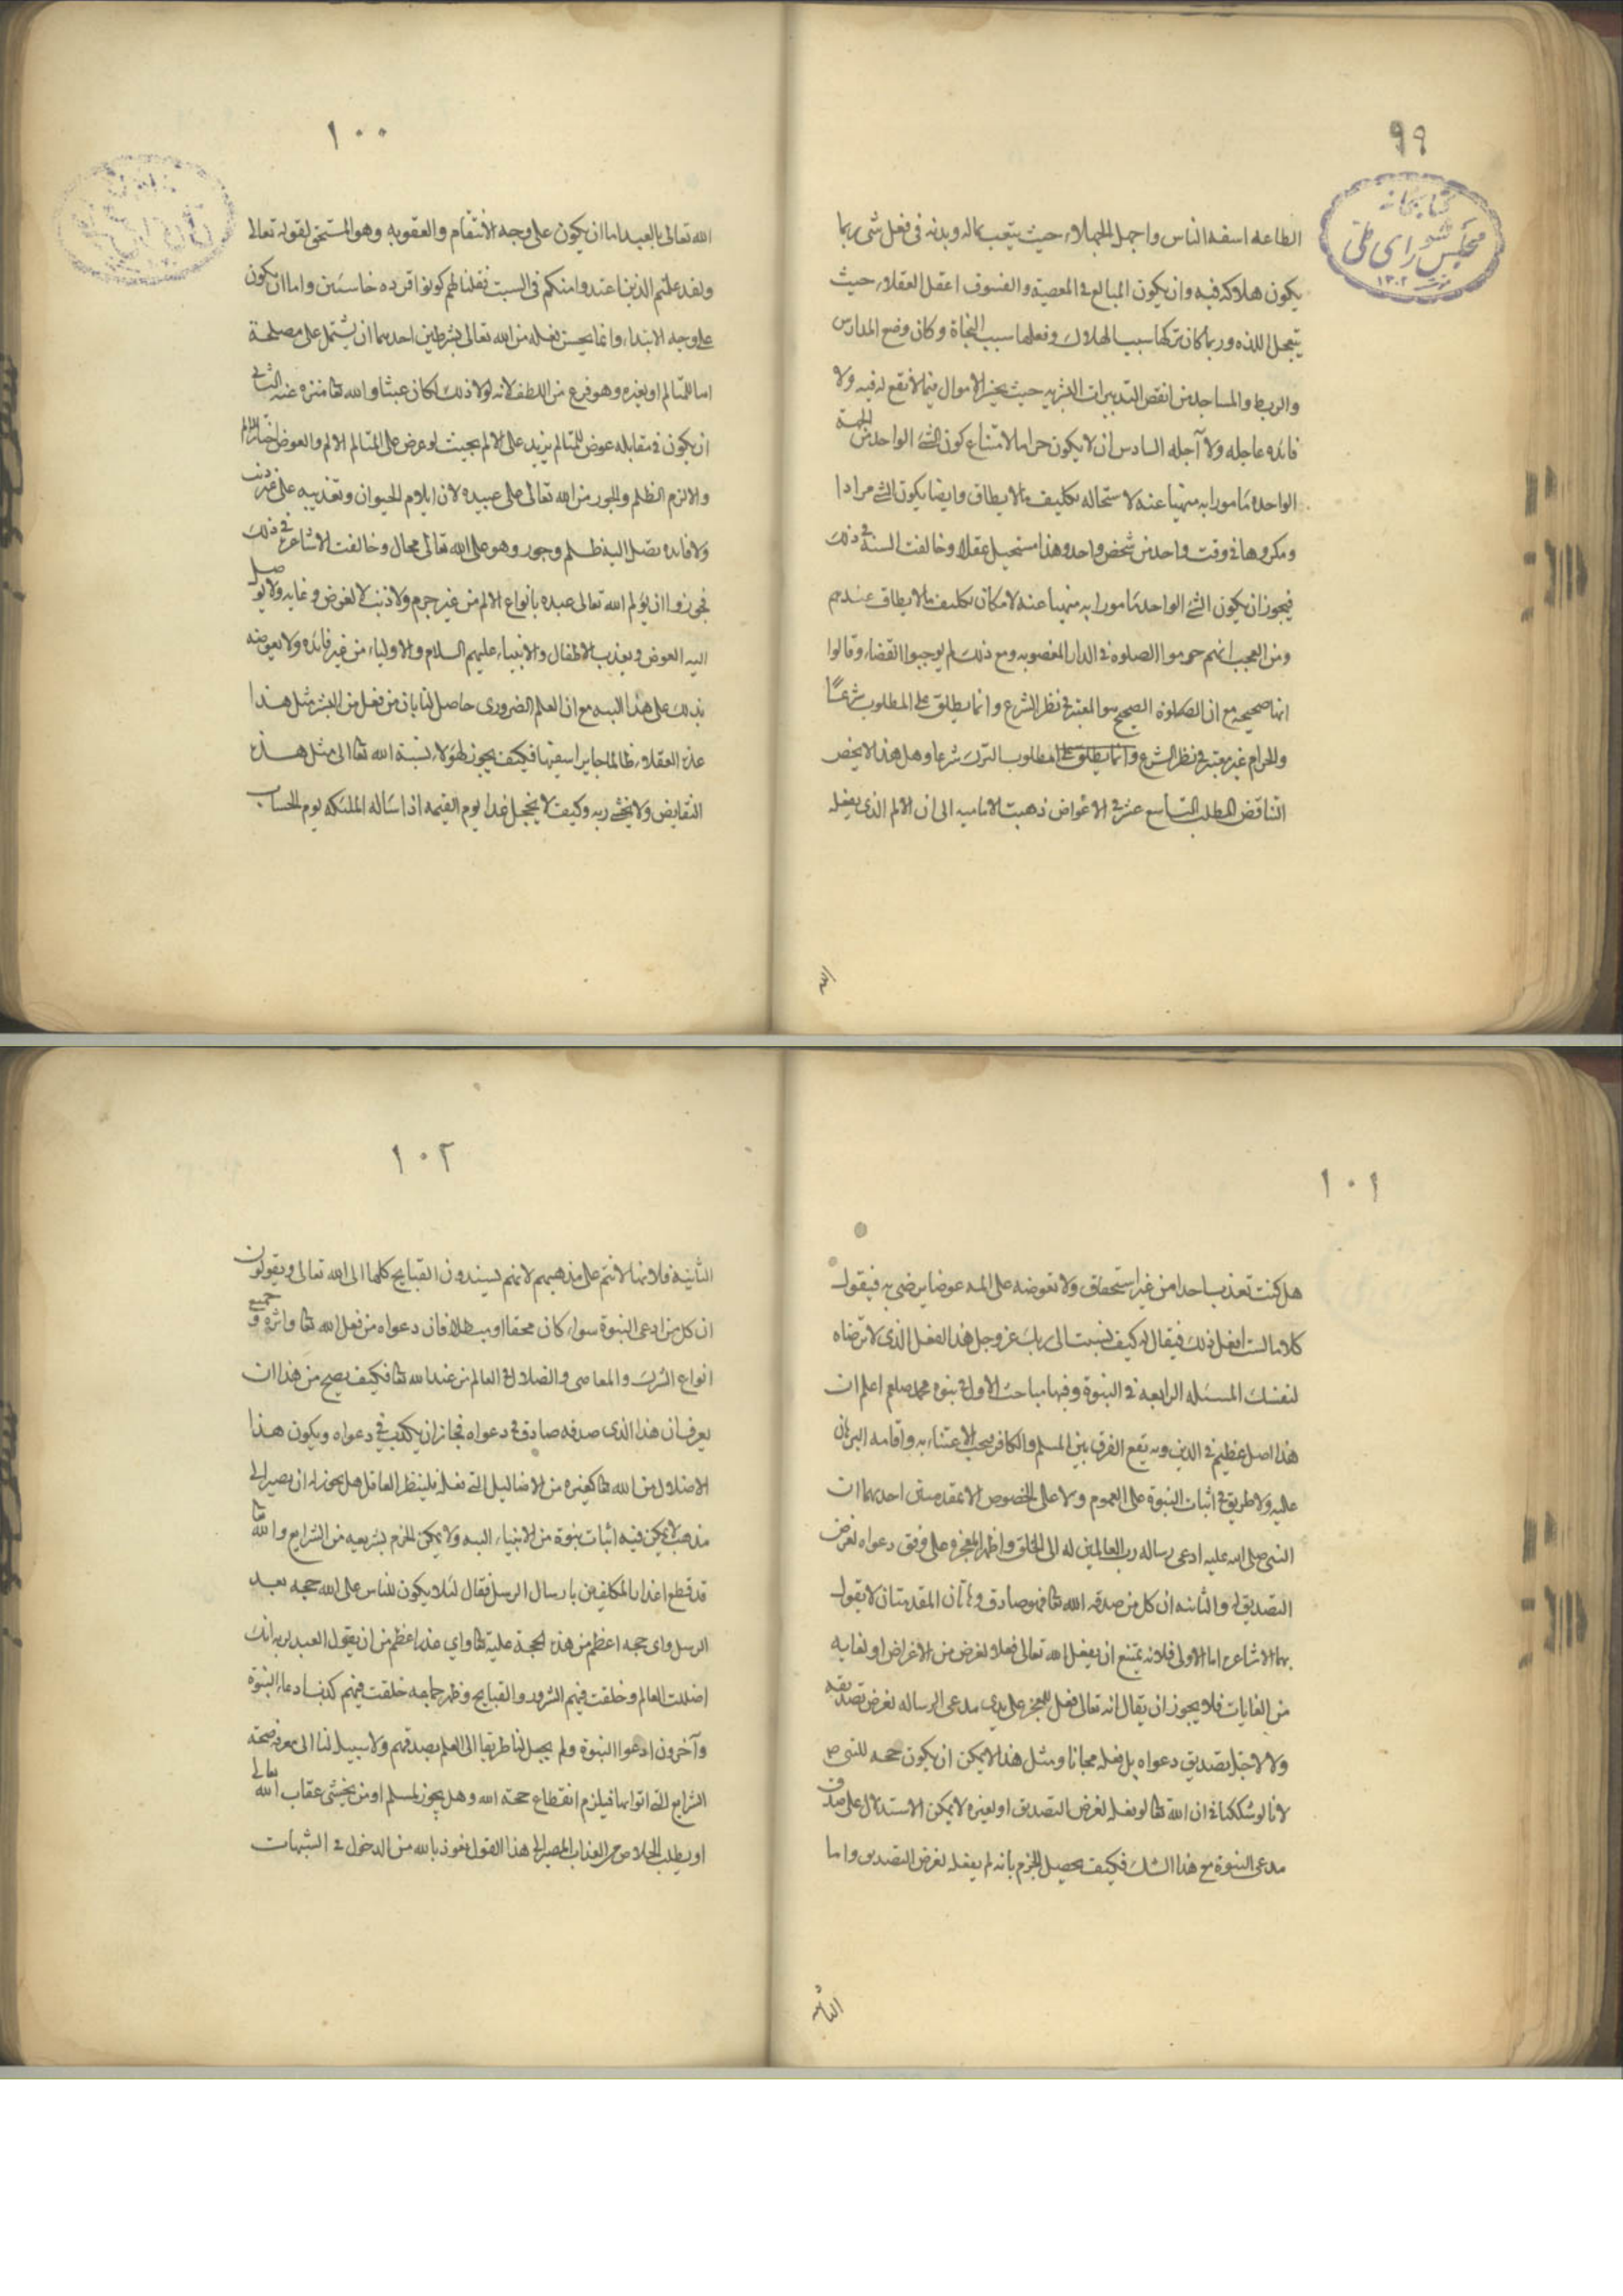 ٩٩
كتابخانه
مجلس شورای ملی
١٣٠٢
الطاعه اسفه الناس واجهل الجهلاء حيث يتعب بماله وبدنه فى فعل شى ربما
يكون هلاكه فيه وان يكون المبالغ فى المعصية والفسوق اعقل العقلاء حيث
يتعجل اللذه وربما كان تركها سببا لهلاك وفعلها سبب النجاة وكان وضع المدارس
والربط والمساجد من انقص التدبيرات البشريه حيث يخسر الاموال فيما لا نفع له فيه ولا
فائده عاجله ولا آجله السادس ان لا يكون حراما لامتناع كون الشئ الواحد من الجهة
الواحده مامورا به منهيا عنه لاستحاله تكليف ما لا يطاق وايضا يكون الشئ مرادا
ومكروها فى وقت واحد من شخص واحد وهذا مستحيل عقلا وخالفت السنة فى ذلك
فيجوز ان يكون الشئ الواحد مامورا به منهيا عنه لامكان تكليف ما لا يطاق عندهم
ومن العجب انهم حرموا الصلوه فى الدار المغصوبه ومع ذلك لم يوجبوا القضاء وقالوا
انها صحيحه مع ان الصلاوة الصحيح هو المعتبر فى نظر الشرع وانما يطلق على المطلوب شرعا
والحرام غير معتبر فى نظر الشرع وانما يطلق على المطلوب الترك شرعا وهل هذا الا محض
التناقض المطلب التاسع عشر فى الاعواض ذهبت الاماميه الى ان الالم الذى يفعله
الله
١٠٠
الله تعالى بالعبد اما ان يكون على وجه الانتقام والعقوبه وهو المستحق لقوله تعالى
ولقد علمتم الذين اعتدوا منكم فى السبت فقلنا لهم كونوا قرده خاسئين واما ان يكون
على وجه الابتداء وانما يحسن فعله من الله تعالى بشرطين احدهما ان يشتمل على مصلحة
اما للمتالم او لغيره وهو فرع من اللطف لانه لولا ذلك لكان عبثا والله تعا منزه عنه الثانى
ان يكون فى مقابله عوض للمتالم يزيد على الالم بحيث لو عرض على المتالم الالم والعوض اختار الالم
والا لزم الظلم والجور من الله تعالى على عبيده لان ايلام الحيوان وتعذيبه على غير ذنب
ولا فائده تصل اليه ظلم وجور وهو على الله تعالى محال وخالفت الاشاعره فى ذلك
فجوزوا ان يؤلم الله تعالى عبده بانواع الالم من غير جرم ولا ذنب لا لغرض وغايه ولا يوصل
اليه العوض ويعذب الاطفال والانبياء عليهم السلام والاولياء من غير فائده ولا يعوضه
بذلك على هذا البته مع ان العلم الضرورى حاصل لنا بان من فعل من البشر مثل هذا
عده العقلاء ظالما جايرا سفيها فكيف يجوز لهؤلاء نسبة الله تعا الى مثل هذه
النقايص ولا يخشى ربه وكيف لا يخجل غدا يوم القيمه اذا سأله الملئكه يوم الحساب
١٠١
هل كنت تعذب احدا من غير استحقاق ولا تعوضه على المه عوضا يرضى به فيقول
كلا ما كنت افعل ذلك فيقال له كيف نسبت الى ربك عز وجل هذا الفعل الذى لا ترضاه
لنفسك المسئله الرابعه فى النبوة وفيها مباحث الاول فى نبوه محمد صلعم اعلم ان
هذا اصل عظيم فى الدين وبه يقع الفرق بين المسلم والكافر يجب الاعتناء به واقامه البرهان
عليه ولا طريق فى اثبات النبوة على العموم ولا على الخصوص الا بمقدمتين احدهما ان
النبى صلى الله عليه ادعى رساله رب العالمين له الى الخلق واظهر المعجزه على وفق دعواه لغرض
التصديق له والثانيه ان كل من صدقه الله تعا فهو صادق وهاتان المقدمتان لا يقول
بهما الاشاعره اما الاولى فلانه يمتنع ان يفعل الله تعالى فعلا لغرض من الاغراض او لغايه
من الغايات فلا يجوز ان يقال انه تعالى فعل المعجز على يدى مدعى الرساله لغرض تصديقه
ولا لاجل تصديق دعواه بل فعله مجانا ومثل هذا لا يمكن ان يكون حجه للنبى ص
لانا لو شككنا فى ان الله تعا لو فعله لغرض التصديق او لغيره لا يمكن الاستدلال على صدق
مدعى النبوة مع هذا الشك فكيف يحصل الجزم بانه لم يفعله لغرض التصديق واما
الثانيه
١٠٢
الثانية فلانها لا تتم على مذهبهم لانهم يسندون القبايح كلها الى الله تعالى ويقولون
ان كل من ادعى النبوة سواء كان محقا او مبطلا فان دعواه من فعل الله تعا واثره و جميع
انواع الشرك والمعاصى والضلال فى العالم من عند الله تعا فكيف يصح من هذا ان
يعرف ان هذا الذى صدقه صادق فى دعواه فجاز ان يكذب فى دعواه ويكون هذا
الاضلال من الله تعا كغيره من الاضاليل التى فعله فلينظر العاقل هل يجوز له ان يصير الى
مذهب لا يمكن فيه اثبات نبوة من الانبياء البته ولا يمكن الجزم بشريعه من الشرايع والله تعا
قد قطع اعذار المكلفين بارسال الرسل فقال لئلا يكون للناس على الله حجه بعد
الرسل واى حجه اعظم من هذه الحجة عليه تعا واي عذر اعظم من ان يقول العبد لربه انك
اضللت العالم وخلقت فيهم الشرور والقبايح وظهر جماعه خلقت فيهم كذب ادعاء النبوة
وآخرون ادعوا النبوة ولم يجعل لنا طريقا الى العلم بصدقهم ولا سبيل لنا الى معرفه صحة
الشرايع التى اتوا بها فيلزم انقطاع حجة الله وهل يجوز لمسلم او من يخشى عقاب الله تعالى
او يطلب الخلاص من العذاب المصير الى هذا القول نعوذ بالله من الدخول فى الشبهات